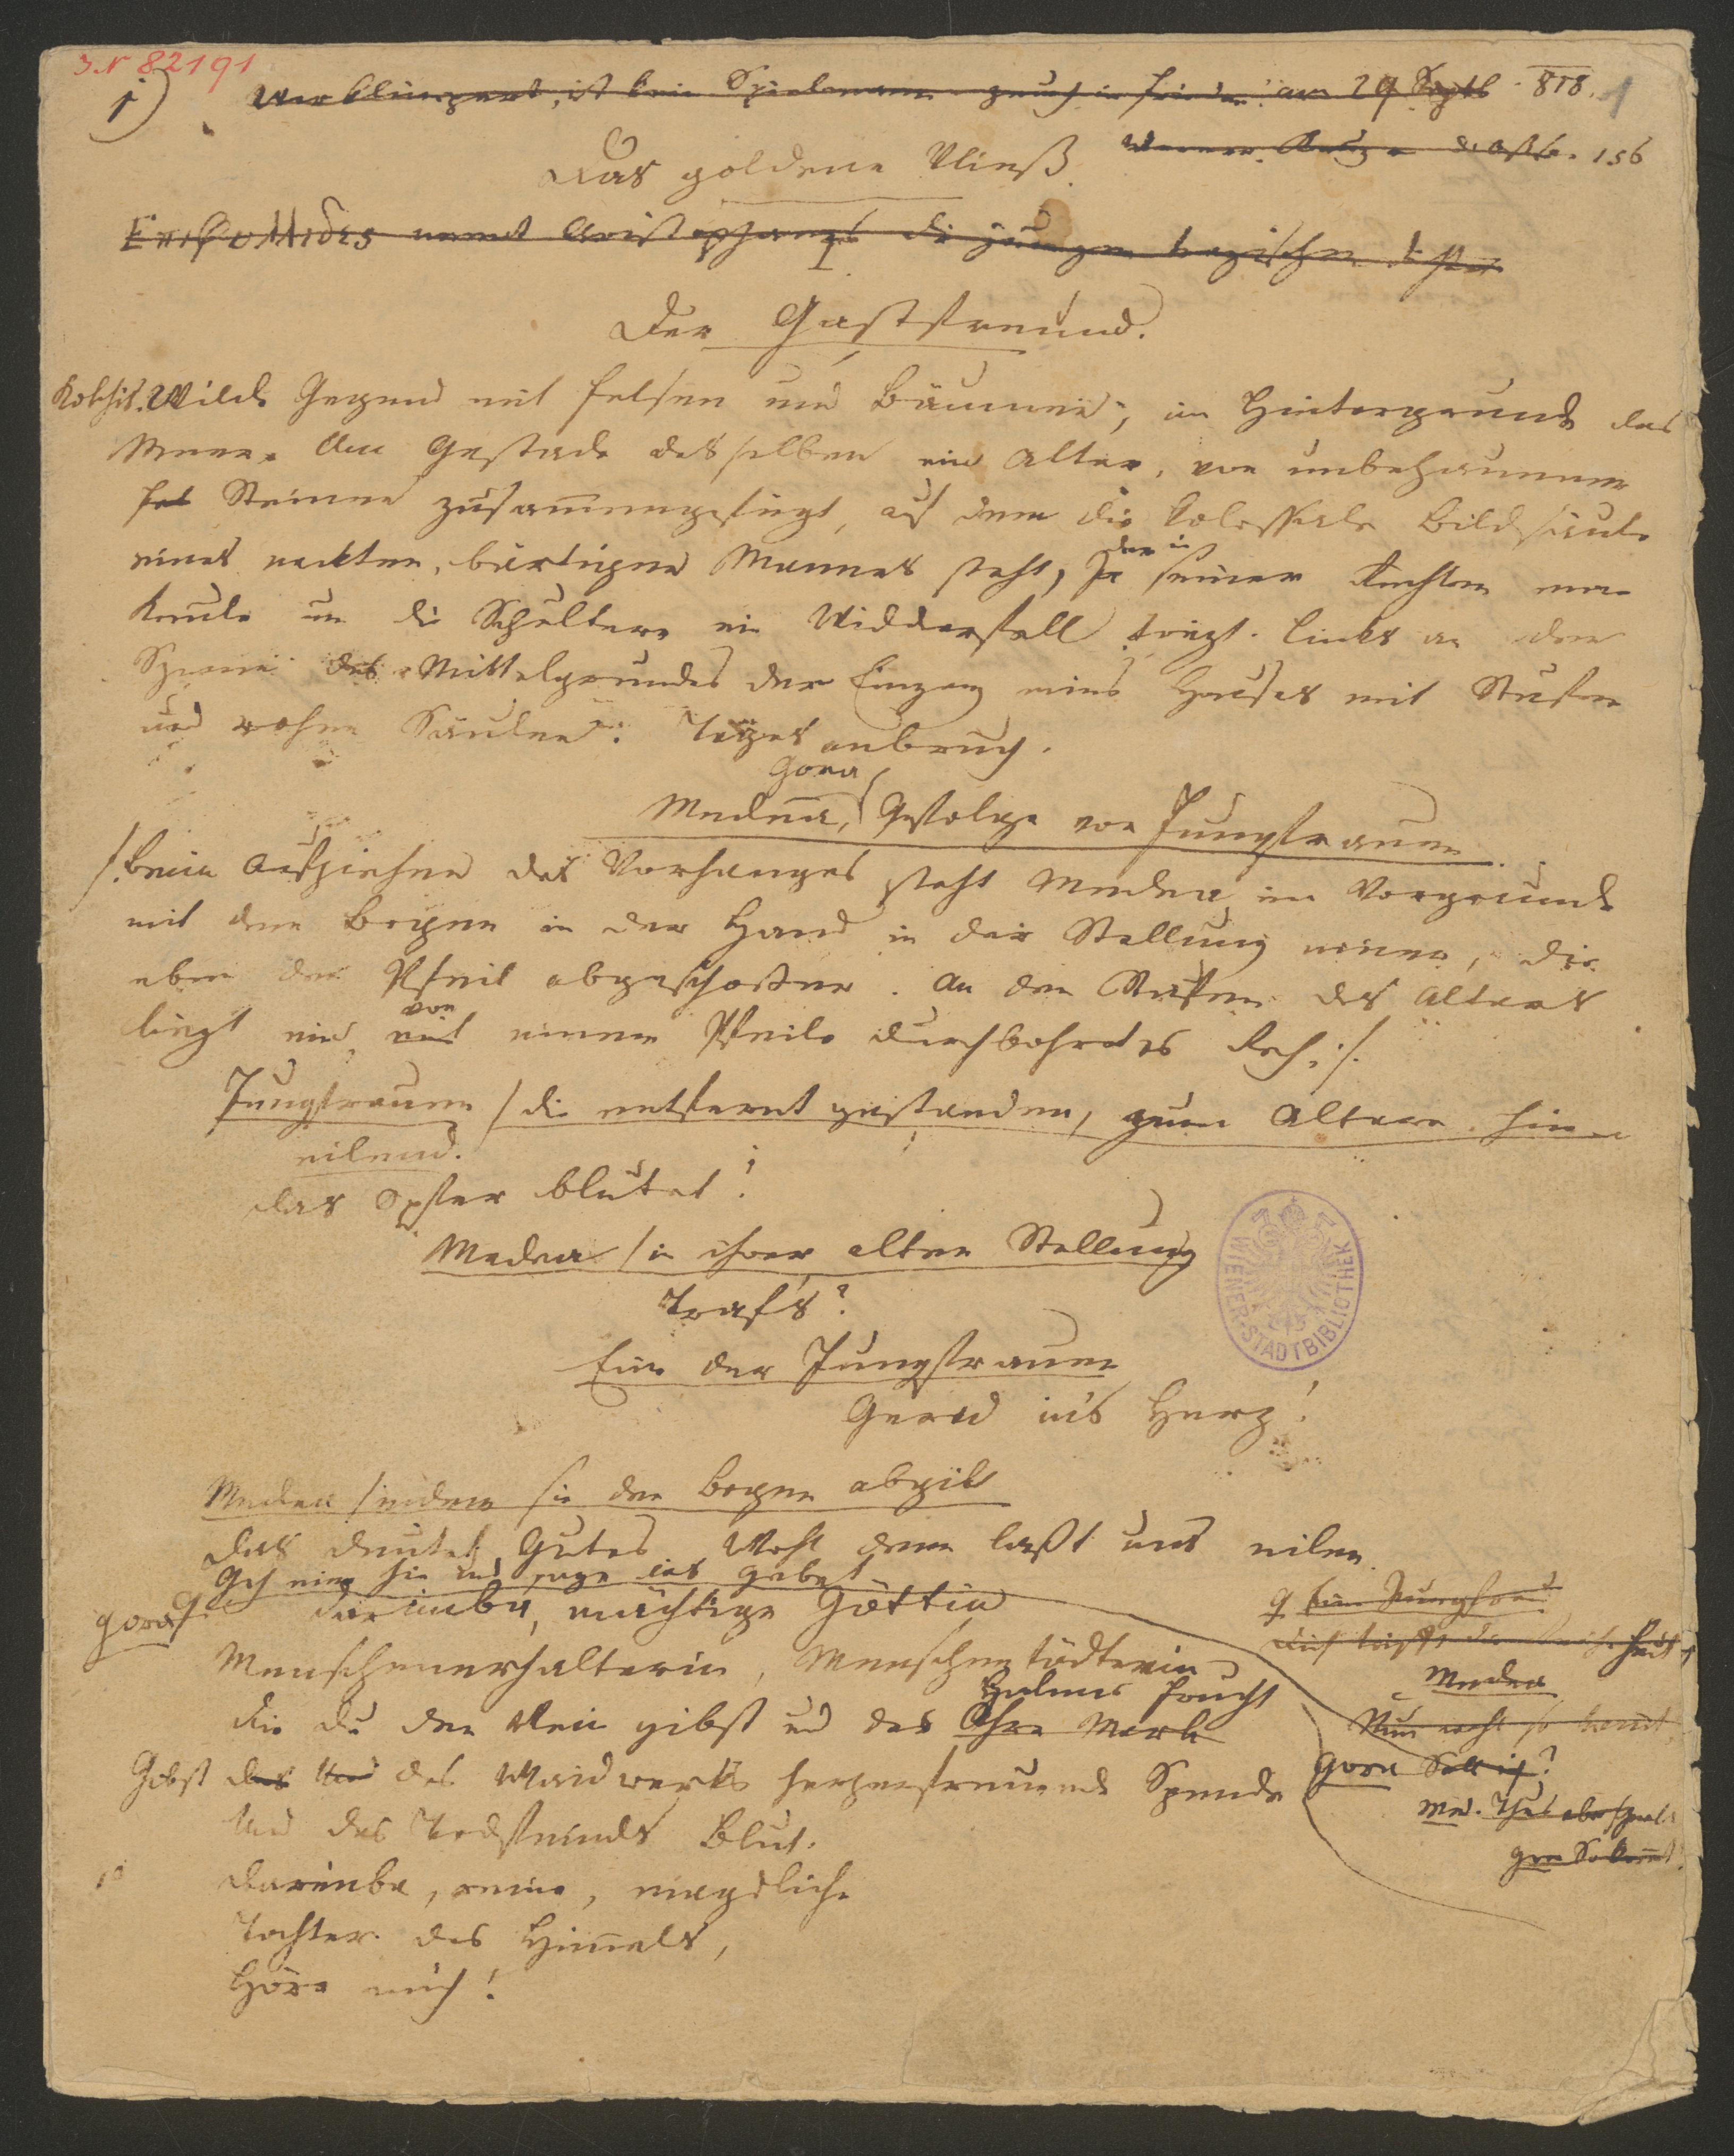 J.N 82191
1)
am 29 Septb. 818. 1
Das goldene Vließ.
156
I.
Der Gastfreund.
Kolchis. Wilde Gegend mit Felsen und Bäumen, im Hintergrunde das
Meer. Am Gestade desselben ein Altar, von unbehauenen
Fel Steinen zusammengefügt, auf dem die kolossale Bildsäule
eines nackten, bärtigen Mannes steht, der in seiner Rechten eine
Keule um die Schultern ein Widderfell trägt. Links an den
Szenen des Mittelgrundes der Eingang eines Hauses mit Stufen
und rohen Säulen. Tagesanbruch.
Gora
Medea, Gefolge von Jungfrauen.
/:Beim Aufziehen des Vorhanges steht Medea im Vorgrunde
mit dem Bogen in der Hand in der Stellung einer, die
eben den Pfeil abgeschoßen. An den Stufen des Altars
von
liegt ein mit einem Pfeile durchbohrtes Reh:/.
Jungfrauen /die entfernt gestanden, zum Altare hin
eilend.
Das Opfer blutet!
Medea /in ihrer alten Stellung
Traf's?
Eine der Jungfrauen
Gerad ins Herz!
Medea /indem sie den Bogen abgibt
Das deutet Gutes Wohl denn laßt uns eilen.
Geh eine hin und sage das Gebet
Gora Darimba, mächtige Göttin
Menschenerhalterin, Menschentödterin
Halmes Frucht
Die du den Wein gibst und des Ähre Mark
Gibst des Waidwerks herzerfreuende Spende
Und des Todfeinds Blut.
10 Darimba, reine, magdliche
Tochter des Himmels,
Höre mich!
Eine Jungfrau
Medea
Nun wohl so komt
Gora Soll ich?
Med.
WIENER-STADTBIBLIOTHEK